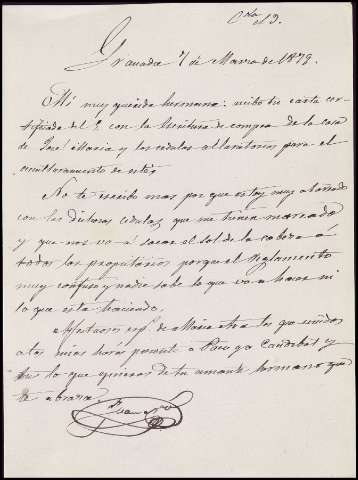 Granada 7 de Marzo de 1879.
Mi muy querida hermana: recibo tu carta cer-
tificada del 5 con la Escritura de compra de la casa
de José Maria y las cedulas aclaratorias para el
de estas
No te escribo mas por que estoy muy abrumado
con las dichosas cedulas, que me tienen mareado
y que nos va á sacar el sol de la cabeza á
todos los propietarios porque el Reglamento
muy confuso y nadie sabe lo que va a hacer ni
lo que esta haciendo.
Afectuosas de Maria
a las mias harás presente a Paco y a Candida y
tu lo que quieras de tu amante hermano que
te abraza
Juan